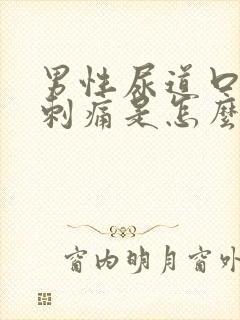 男性尿道口
刺痛是怎麼
窗内明月窗外